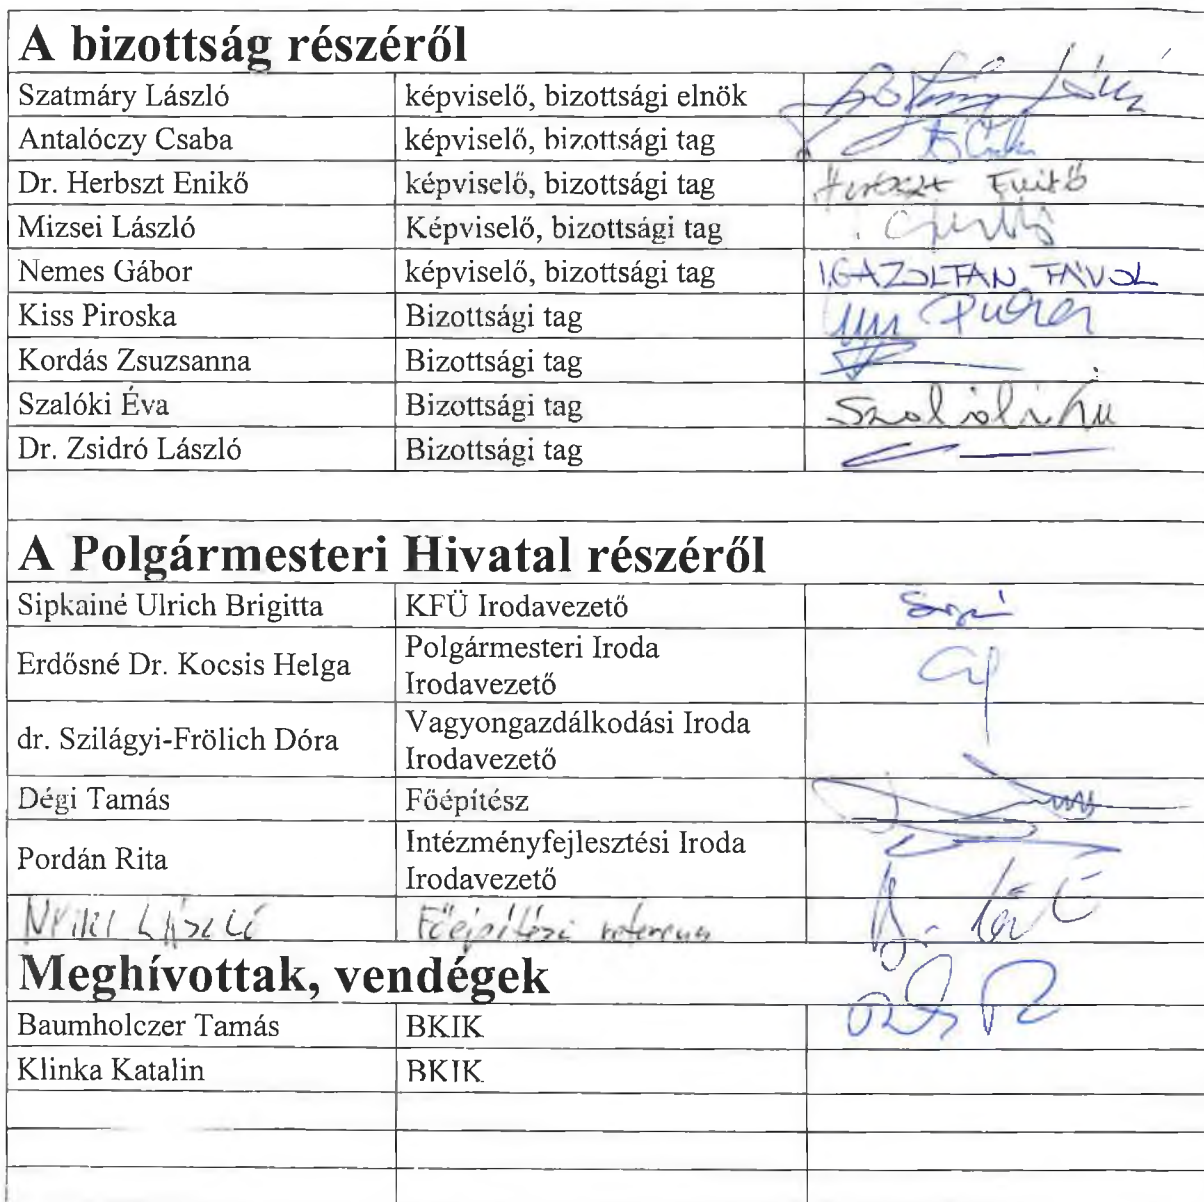 A bizottság részéről
Szatmáry László képviselő, bizottsági elnök
Antalóczy Csaba képviselő, bizottsági tag
Dr. Herbszt Enikő képviselő, bizottsági tag Herbszt Enikő
Mizsei László Képviselő, bizottsági tag
Nemes Gábor képviselő, bizottsági tag IGAZOLTAN TÁVOL
Kiss Piroska Bizottsági tag
Kordás Zsuzsanna Bizottsági tag
Szalóki Éva Bizottsági tag
Dr. Zsidró László Bizottsági tag
A Polgármesteri Hivatal részéről
Sipkainé Ulrich Brigitta KFÜ Irodavezető
Erdősné Dr. Kocsis Helga Polgármesteri Iroda
Irodavezető
dr. Szilágyi-Frölich Dóra Vagyongazdálkodási Iroda
Irodavezető
Dégi Tamás Főépítész
Pordán Rita Intézményfejlesztési Iroda
Irodavezető
László Főépítészi referens
Meghívottak, vendégek
Baumholczer Tamás BKIK
Klinka Katalin BKIK